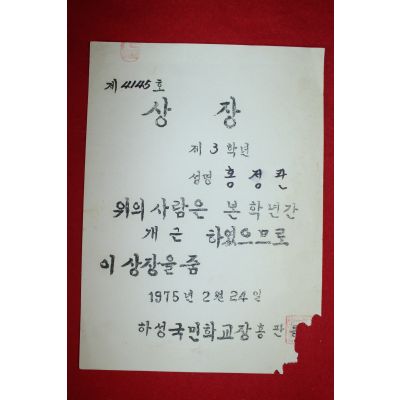 제 4145 호
상 장
제 3 학년
성명 홍정관
위의 사람은 본 학년간
개근 하였으므로
이 상장을 줌
1975 년 2 월 24 일
하성국민학교장 홍 판